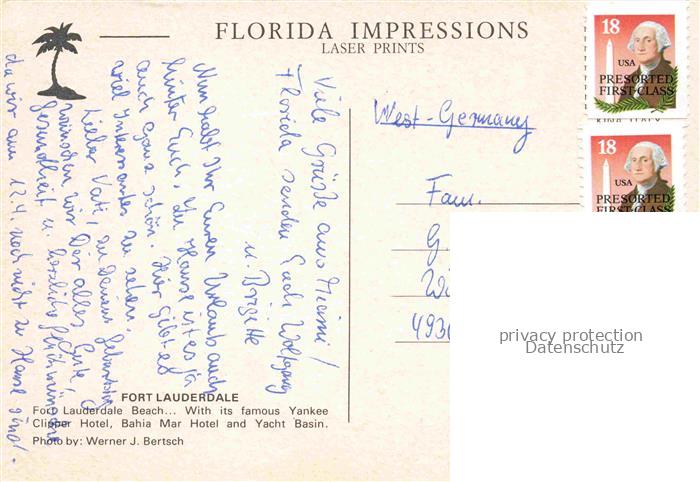 FLORIDA IMPRESSIONS
LASER PRINTS
18
USA
PRESORTED
FIRST-CLASS
18
USA
PRESORTED
FIRST-CLASS
Viele Grüsse aus Miami /
Florida senden Euch Wolfgang
u. Brigitte
Nun habt Ihr Euren Urlaub auch
hinter Euch, zu Hause ist es ja
auch ganz schön. Hier gibt es
viel Interessantes zu sehen.
Lieber Vati, zu Deinem Geburtstag
wünschen wir Dir alles Gute,
Gesundheit u. herzliche Glückwünsche
da wir am 12.4. noch nicht zu Hause sind.
West-Germany
Fam.
G.
Wi
493
privacy protection
Datenschutz
FORT LAUDERDALE
Fort Lauderdale Beach... With its famous Yankee
Clipper Hotel, Bahia Mar Hotel and Yacht Basin.
Photo by: Werner J. Bertsch